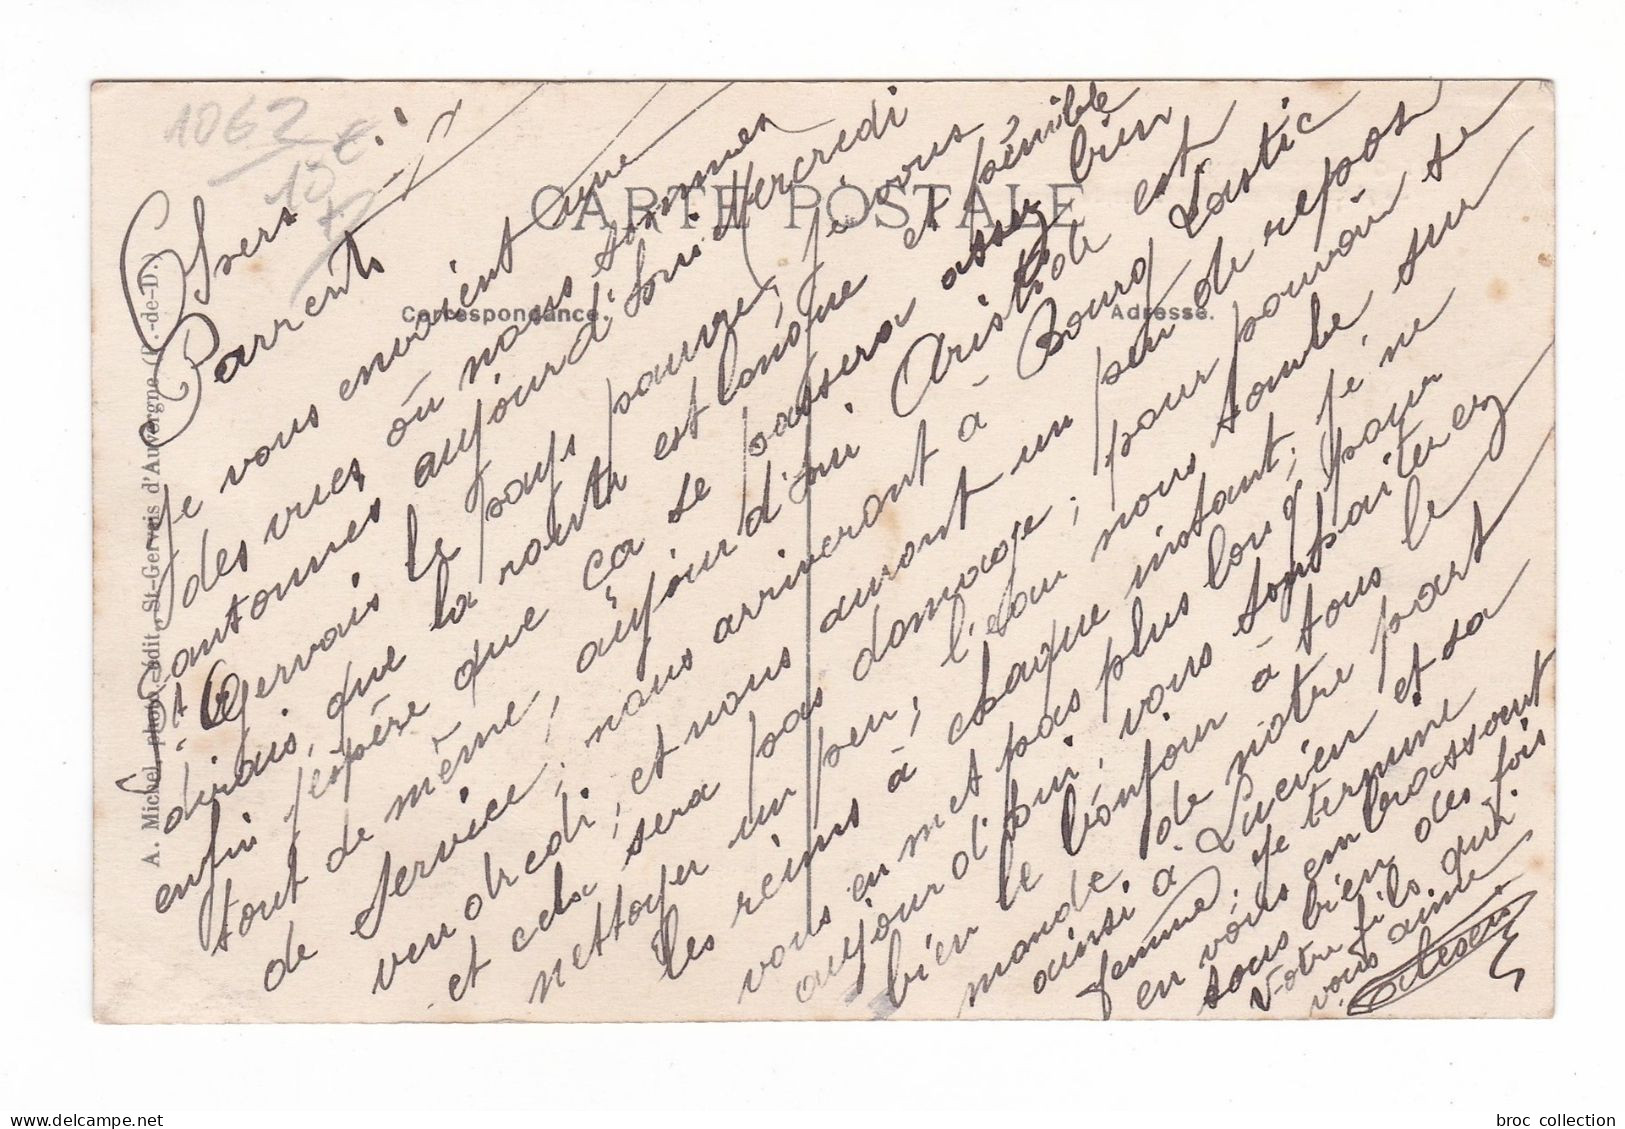 1062
10 €
CARTE POSTALE
Correspondance.
Adresse.
A. Michel, photo édit., St-Gervais d'Auvergne (P.-de-D.)
Chers
Parrents
Je vous envoient une
des vues, où nous sommes
cantonnés aujourd'hui Mercredi
St Gervais le pays pauvre, je vous
dirais, que la route est longue et pénible
enfin j'espère que ça se passera assez bien
tout de même, aujourd'hui Aristide est
de Service, nous arriveront à Bourg Lastic
vendredi, et nous auront un peu de repos
et cela sera pas domage, pour pouvoir se
nettoyer un peu, l'eau nous tombe sur
les reins à chaque instant, je ne
vous en met pas plus long pour
aujourd'hui, vous souhaiterez
bien le bonjour à tous le
monde de notre part
ainsi à Lucien et sa
femme, je termine
en vous embrassant
tous bien des fois
Votre fils qui
vous aime